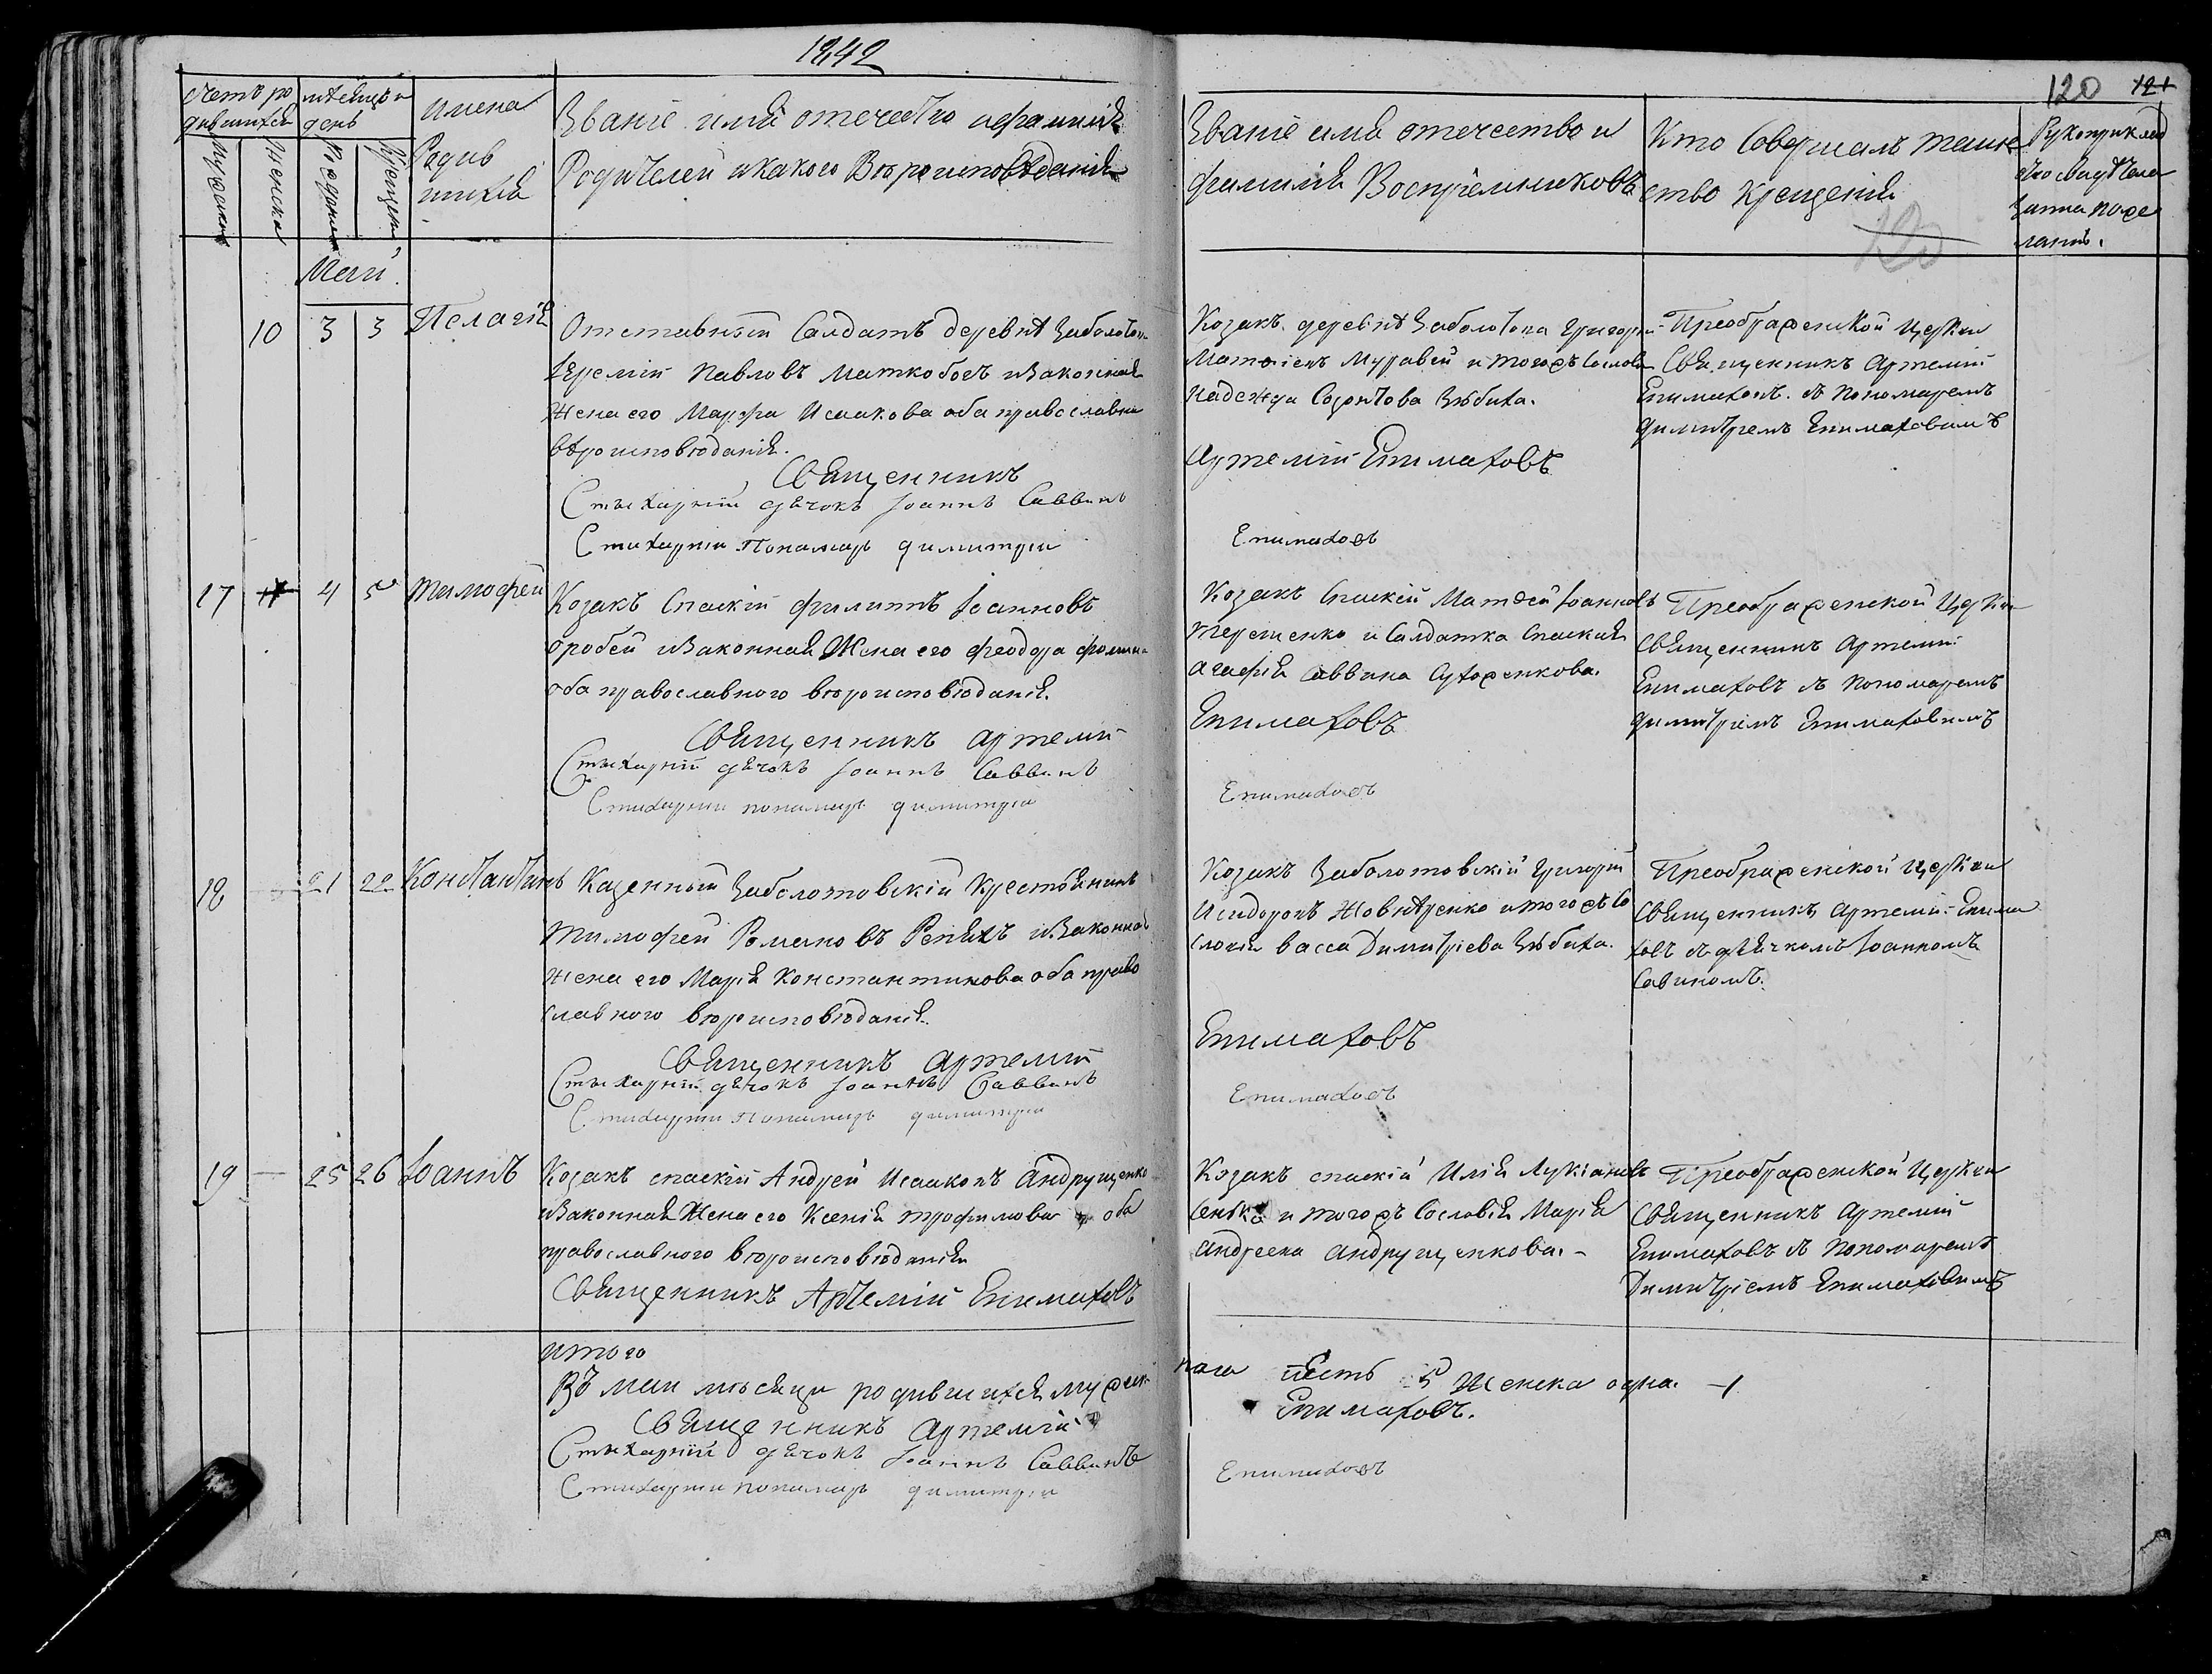 1842
120 121
Счетъ ро
дившихся
мѣсяцъ и
день
имена
Родив
шихся
Званіе имя отечество и фамилія
Родителей и какого Вѣроисповѣданія
Званіе имя отечество и
фамилія Воспріемниковъ
Кто Совершалъ таин
ство Крещенія
Рукоприклад
ство свидѣтелей
записи по же
ланію.
Мужеска
Женска
Рожденія
Крещенія
120
Май
10 3 3 Пелагія
Отставный Салдатъ деревнѣ Заболото
Іеремій Павловъ Маткобожъ и Законная
Жена его Марфа Исаакова оба православна
вѣроисповѣданія.
Священникъ
Стыхарній дячокъ Іоаннъ Саввинъ
Стихарни Понамарь димитрий
Козакъ деревнѣ Заболотова Григорій
Матѳіевъ Муравей и тогожъ Сослов
Надежда Созонтова Зѣбиха.
Артемій Епимаховъ
Епимаховъ
Преображенской Церкви
Священникъ Артемій
Епимаховъ съ Пономаремъ
Димитремъ Епимаховимъ
17 4 5 Тимофей
Козакъ Спаскій филиппъ Іоанновъ
оробей и Законная Жена его феодора фомина
оба православного вѣроисповѣданія.
Священникъ артемій
Стыхарній дячокъ Іоаннъ Саввинъ
Стихарни понамарь димитрии
Козакъ Спаскій Матѳей Іоанновъ
терешенко и Салдатка Спаская
агафія Саввина Сухоженкова.
Епимаховъ
Епимаховъ
Преображенской Церкви
Священникъ Артемій
Епимаховъ съ Пономаремъ
Димитріемъ Епимаховимъ
18 – 21 22 Константинъ
Казенный Заболотовскій Крестьянинъ
Тимофей Романовъ Репяхъ и Законная
Жена его Марія Константинова оба право
славного вѣроисповѣданія.
Священникъ артемій
Стыхарній дячокъ Іоаннъ Саввинъ
Стихарни Понамарь димитрии
Козакъ Заболотовскій Григорій
Исидоровъ Жовнѣренко и тогожъ Со
словія васса Димитріева Зѣбиха.
Епимаховъ
Епимаховъ
Преображенской Церкви
Священникъ Артемій Епима
ховъ съ дячкомъ Іоанномъ
Савиномъ.
19 – 25 26 Іоаннъ
Козакъ спаскій Андрей Исааковъ Андрущенко
и Законная Жена его Ксенія трофимова оба
православного вѣроисповѣданія
Священникъ Артемій Епимаховъ
Козакъ спаскій Илія Лукіановъ
и тогожъ Сословія Марія
Андреева Андрущенкова. –
Преображенской Церкви
Священникъ Артемій
Епимаховъ съ Пономаремъ
Димитріемъ Епимаховимъ
итого
Въ маи мѣсяци родившихся мужеск
пола шесть 5 Женска одна. – 1
Священникъ Артемій
Епимаховъ.
Стыхарній дячокъ Іоаннъ Саввинъ
Стихарни понамарь димитрии
Епимаховъ